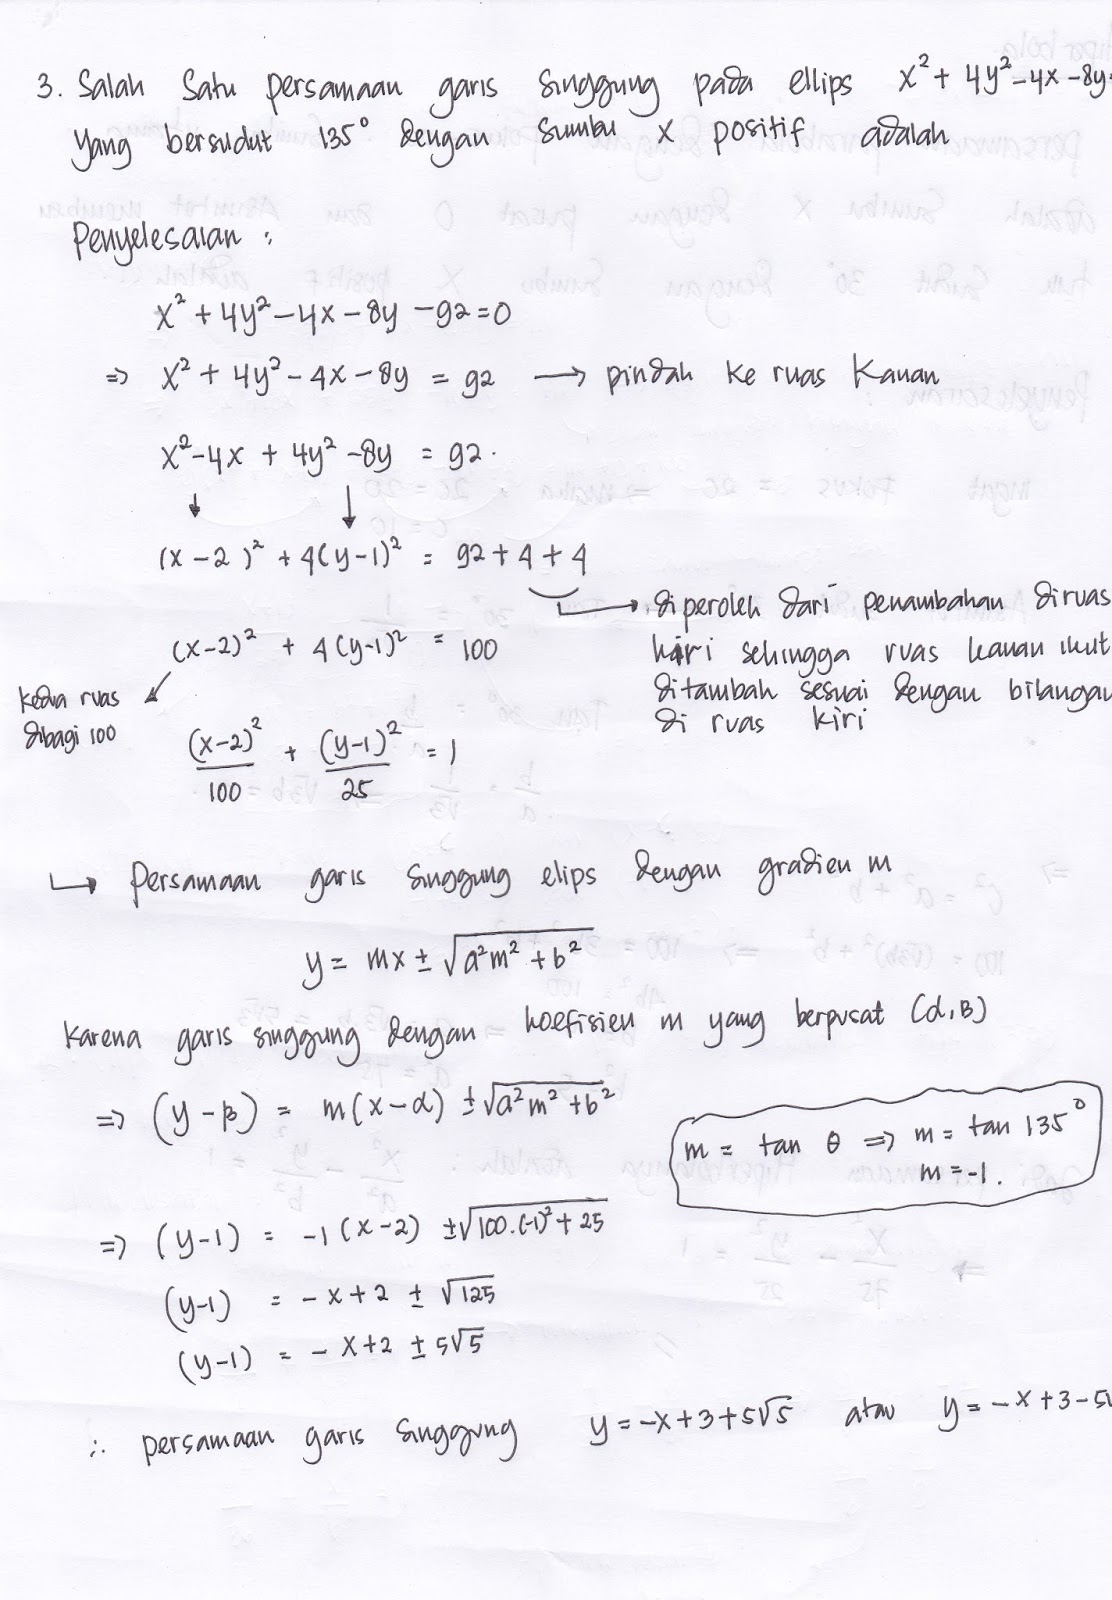 3. Salah satu persamaan garis singgung pada ellips x² + 4y² - 4x - 8y
yang bersudut 135° dengan sumbu x positif adalah
Penyelesaian :
x² + 4y² - 4x - 8y - 92 = 0
⇒ x² + 4y² - 4x - 8y = 92 → pindah ke ruas kanan
x² - 4x + 4y² - 8y = 92.
(x - 2)² + 4(y - 1)² = 92 + 4 + 4
→ diperoleh dari penambahan diruas
kiri sehingga ruas kanan ikut
ditambah sesuai dengan bilangan
di ruas kiri
(x-2)² + 4(y-1)² = 100
kedua ruas
dibagi 100
(x-2)²/100 + (y-1)²/25 = 1
↳ Persamaan garis singgung elips dengan gradien m
y = mx ± √(a²m² + b²)
karena garis singgung dengan koefisien m yang berpusat (α, β)
⇒ (y - β) = m(x - α) ± √(a²m² + b²)
m = tan θ ⇒ m = tan 135°
m = -1.
⇒ (y-1) = -1(x-2) ± √(100.(-1)² + 25)
(y-1) = -x + 2 ± √125
(y-1) = -x + 2 ± 5√5
∴ persamaan garis singgung y = -x + 3 + 5√5 atau y = -x + 3 - 5√